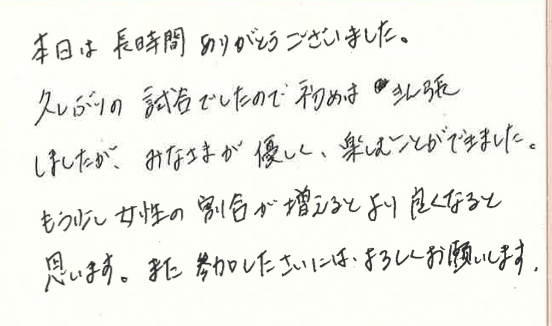 本日は 長時間 ありがとうございました。
久しぶりの 試合でしたので 初めは きん張
しましたが、みなさまが 優しく、楽しむことができました。
もう少し 女性の 割合が 増えると より 良くなると
思います。また 参加したさいには、よろしくお願いします。